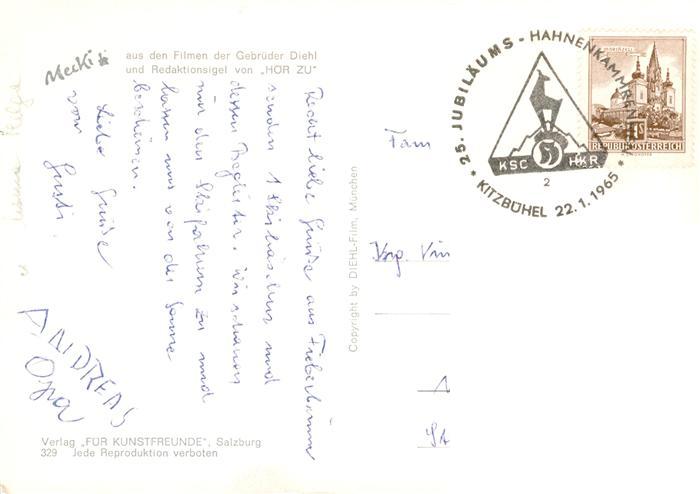 Mecki
aus den Filmen der Gebrüder Diehl
und Redaktionsigel von „HÖR ZU"
Recht liebe Grüße aus Fieberbrunn
senden 1 Skihäschen und
dessen Begleiter. Wir schauen
nur den Skifahrern zu und
lassen uns von der Sonne
bescheinen.
Liebe Grüße
von Gusti.
Helga
ANDREAS
Opa
Verlag „FÜR KUNSTFREUNDE", Salzburg
329 Jede Reproduktion verboten
Copyright by DIEHL-Film, München
* 25. JUBILÄUMS - HAHNENKAMMRENNEN *
KSC HKR
2
KITZBÜHEL 22.1.1965
MARIAZELL
1S
REPUBLIK ÖSTERREICH
Fam